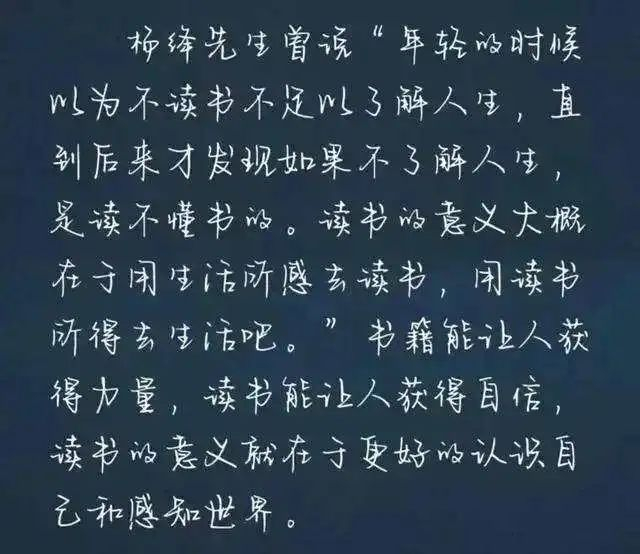 杨绛先生曾说“年轻的时候
以为不读书不足以了解人生，直
到后来才发现如果不了解人生，
是读不懂书的。读书的意义大概
在于用生活所感去读书，用读书
所得去生活吧。”书籍能让人获
得力量，读书能让人获得自信，
读书的意义就在于更好的认识自
己和感知世界。